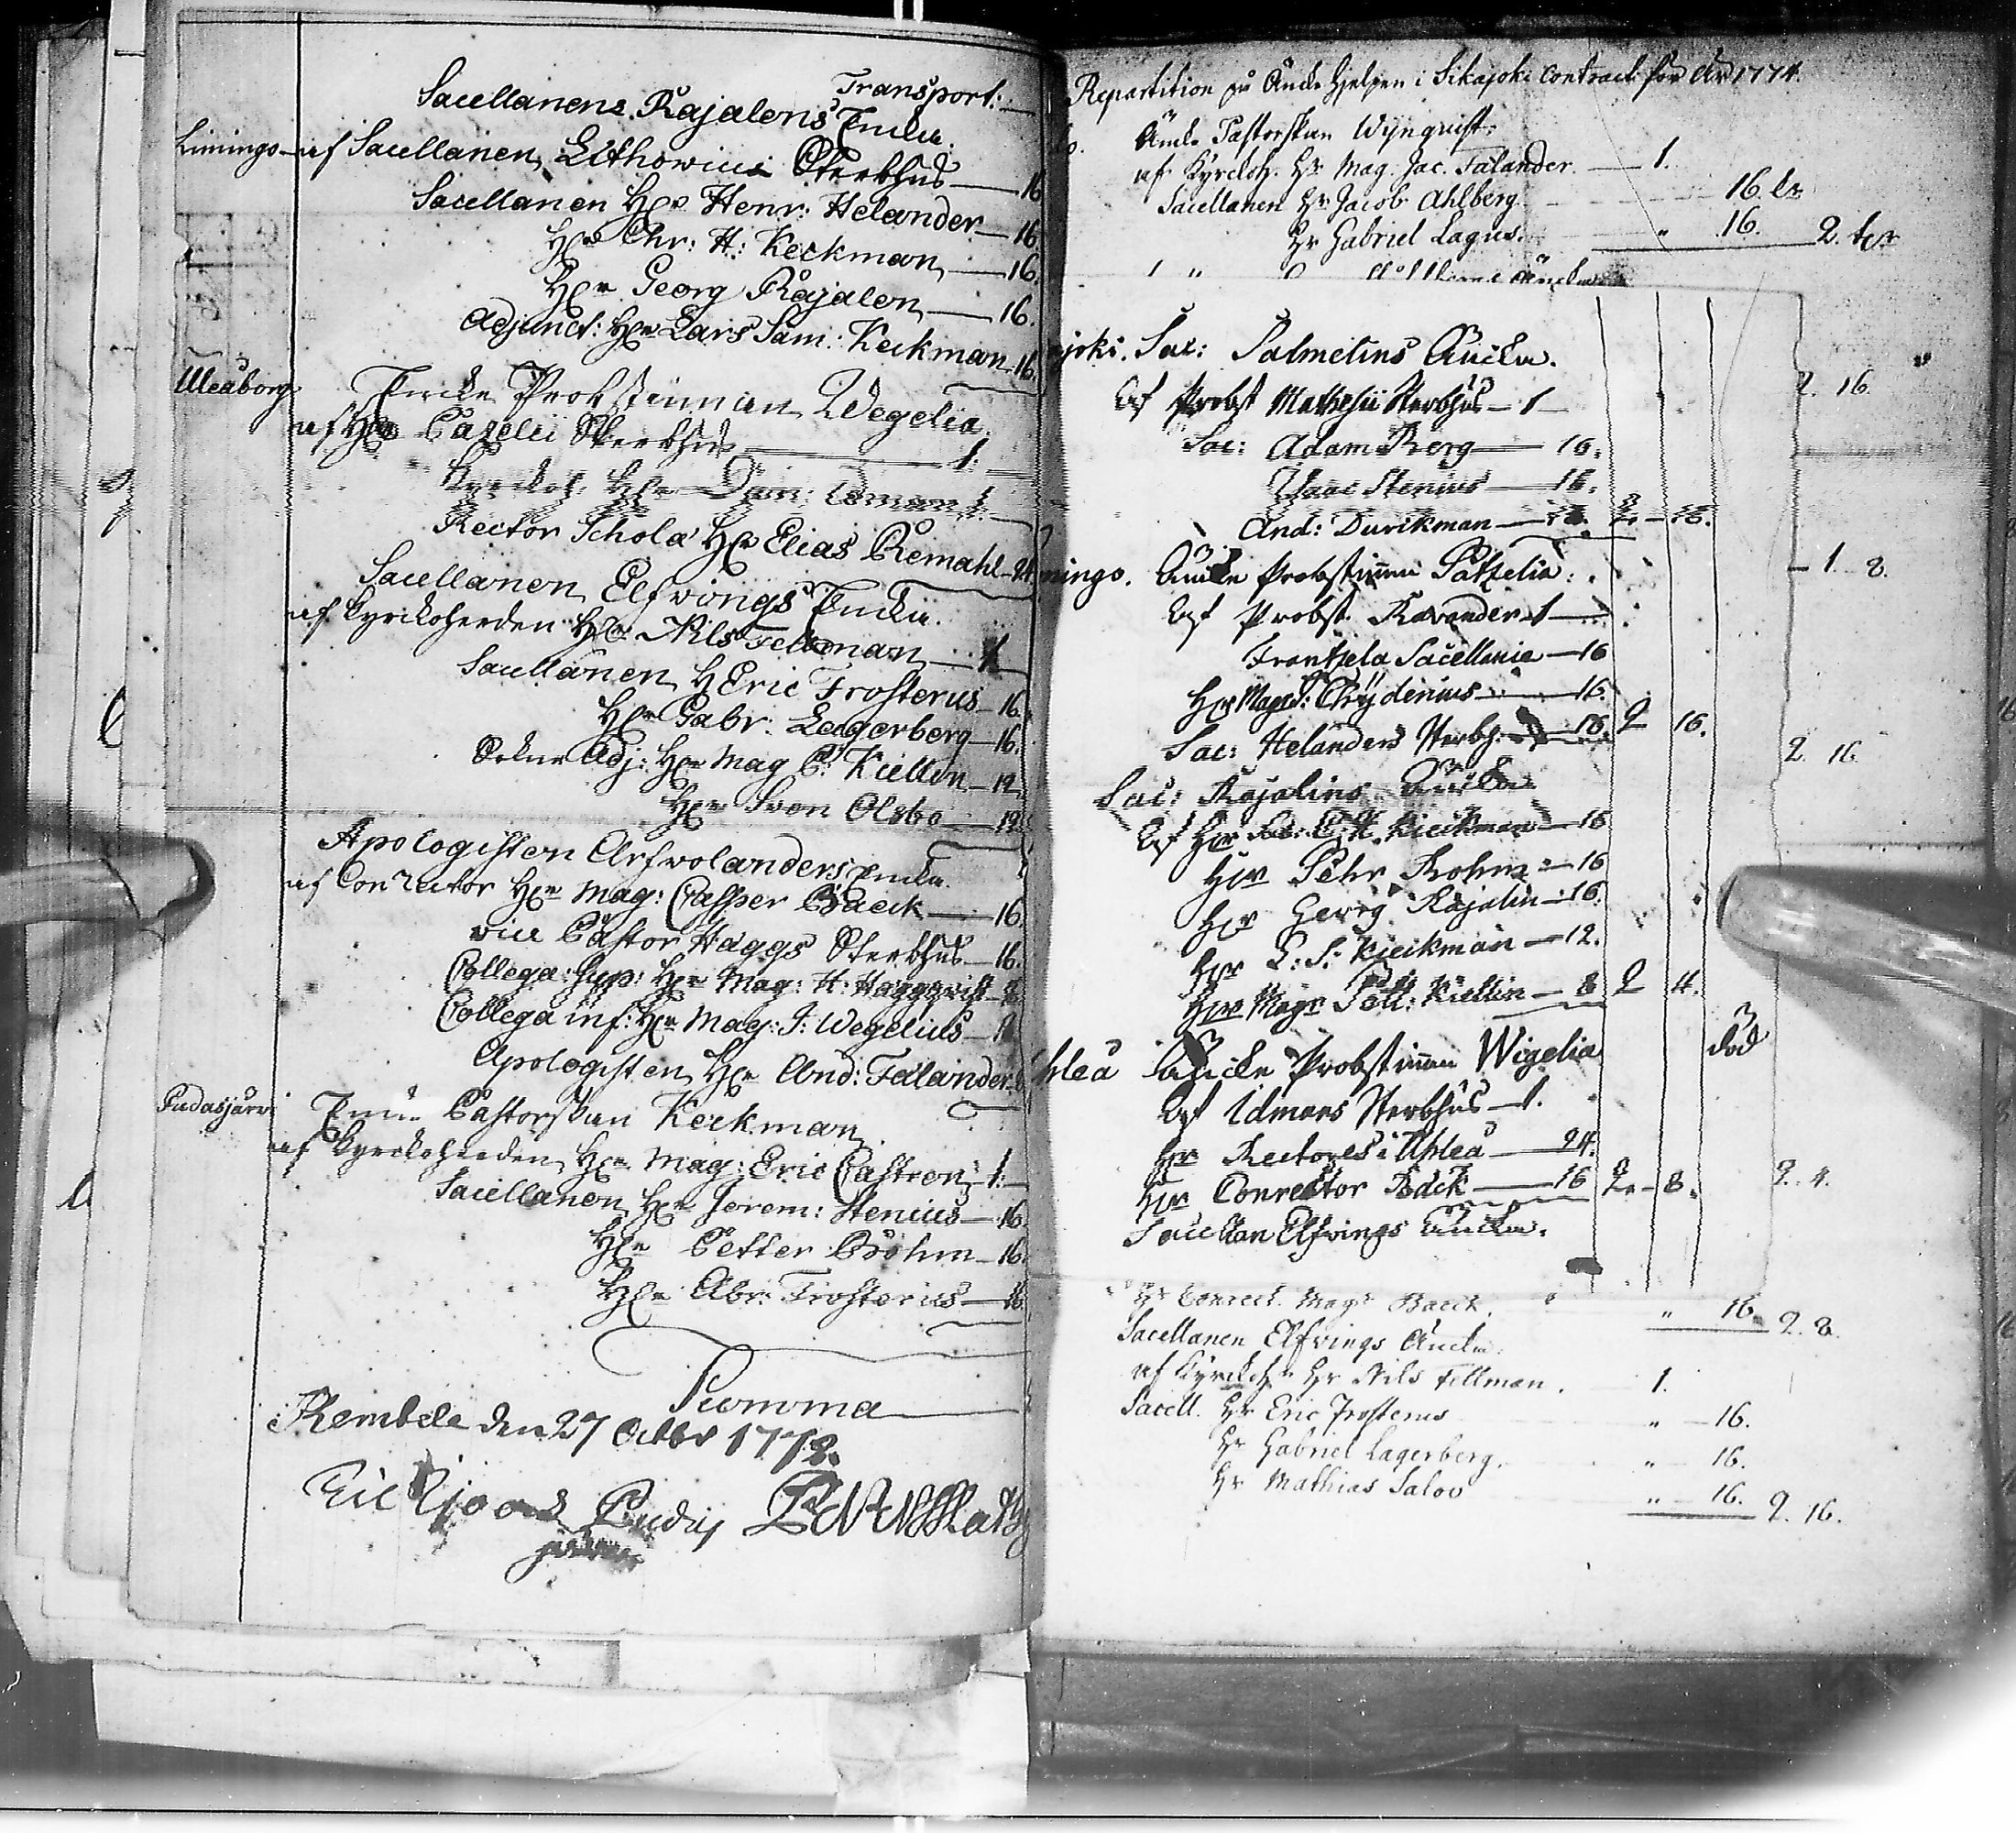 Transport:
Sacellanens Rajalens Enka.
Limingo af Sacellanen Lithowii Sterbhus 16
Sacellanen Her Henr: Helander 16
Her Chr: H: Keckman 16
Her Georg Rajalen 16.
Adjunct: Her Lars Sam: Keckman 16
Uleåborg Encke Probstinnan Wegelia.
af Her Cajelii Sterbhus 1.
Kyrckoh: Her Dan: Idman 1.
Rector Schola Her Elias Remahl 24
Sacellanen Elfvings Encka.
af Kyrckoherden Her Nils Fellman 1
Sacellanen H Eric Frosterus 16.
Her Gabr: Lagerberg 16.
Adj: Her Mag Kiellen 12
Her Sven 12
Apologisten Arfvolanders Encka.
af Conrector Her Mag: Casper Baeck 16.
vice Pastor Häggs Sterbhus 16.
Collega Sup: Her Mag: H: Häggqvist
Collega inf: Her Mag: J: Wegelius
Apologisten Her And: Falander
Pudasjärvi Encke Pastorskan Keckman
af Kyrckoherden Her Mag: Eric Castren 1.
Sacellanen Her Jerem: Stenius 16.
Her Petter Böhm 16.
Her Abr: Frosterus 16.
Summa
Kembele den 27 Octbr 1773.
Repartition på Äncke hjelpen i Sikajoki Contract för År 1774.
Äncke Pastorskan Wynquist.
af Kyrckoh. Hr Mag. Jac. Falander. 1.
Sacellanen Hr Jacob Ahlberg 16. ör
Hr Gabriel Lagus. " 16. 2. ter
joki. Sac: Salmelins Äncka.
2. 16.
af Probst Mathesii Sterbhus 1
Sac: Adam Berg 16.
Isaac Stenius 16.
And: Durikman 16. 2. 16.
mingo. Äncke Probstinnan Patzelia.
1. 8.
af Probst Ravander 1
Frantzela Sacellanie 16
Her Mag: Chydenius 16.
Sac: Helanders Sterbh. 16. 2 16.
2. 16.
Sac: Rajalins Äncka
af Her Sac: C: H. Kieckman 16
Her Pehr Bohm 16
Her Georg Rajalin 16.
Her L: S: Kieckman 12.
Her Magr Kiellin 8 2 4.
Uhleå Äncke Probstinnan Wigelia död
af Idmans Sterbhus 1.
Her Rectores i Uhleå 24.
Her Conrector Bäck 16 2. 8.
2. 4.
Sacellan Elfvings Äncka.
Hr Conrect. Magr Baeck. " 16. 2. 8.
Sacellanen Elfvings Äncka.
af Kyrckoh Hr Nils Fellman. 1.
Sacell. Hr Eric Frosterus " 16.
Hr Gabriel Lagerberg. " 16.
Hr Mathias Salov " 16. 2. 16.